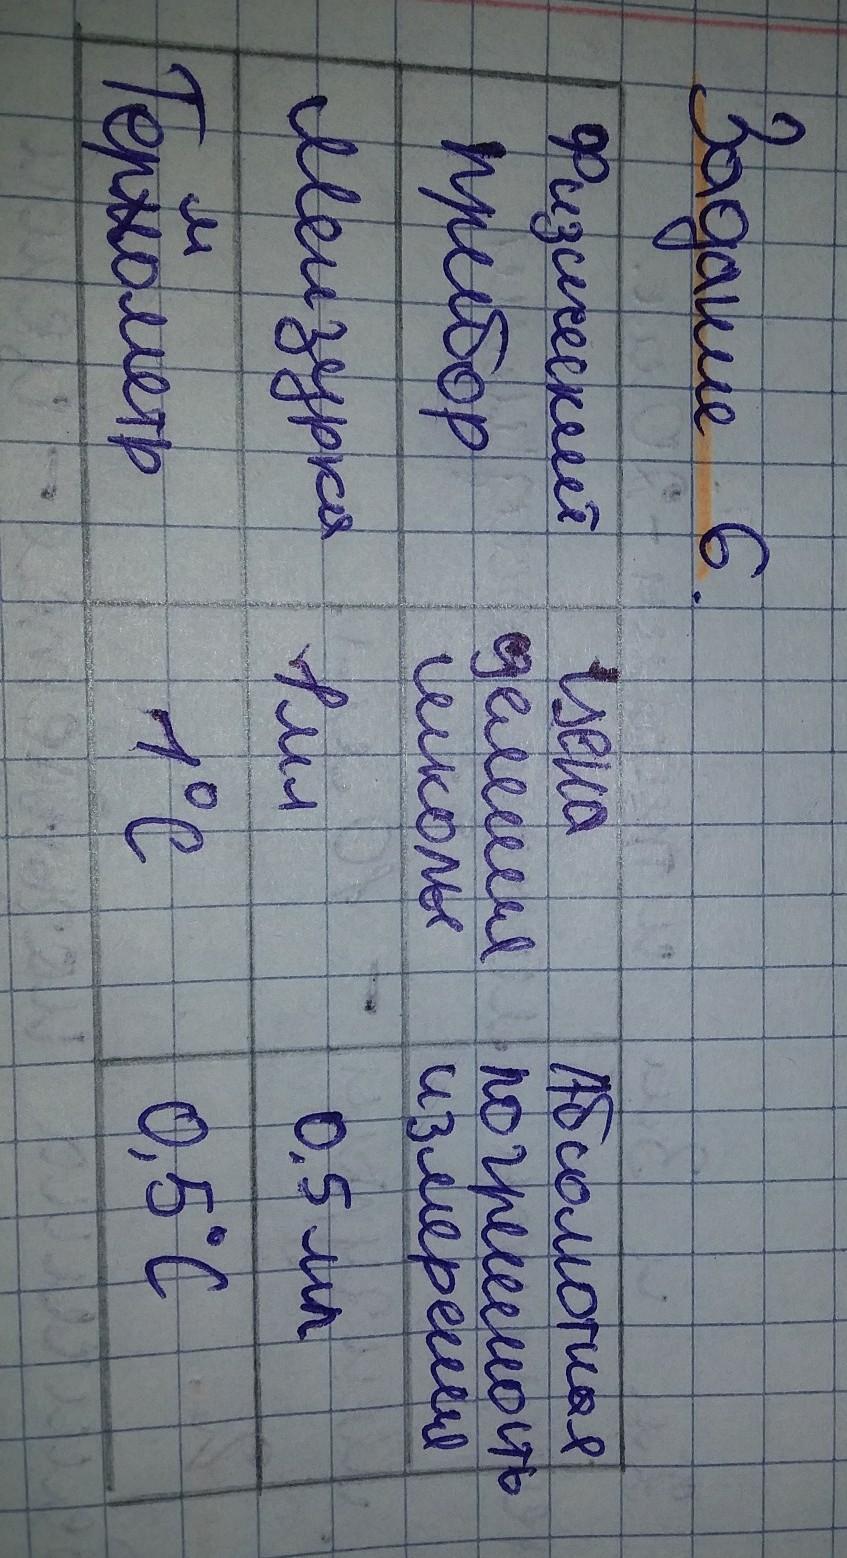 Задание 6.
Физический
прибор
Цена
деления
шкалы
Абсолютная
погрешность
измерения
Мензурка
1 мл
0,5 мл
м
Тернометр
1°C
0,5°C